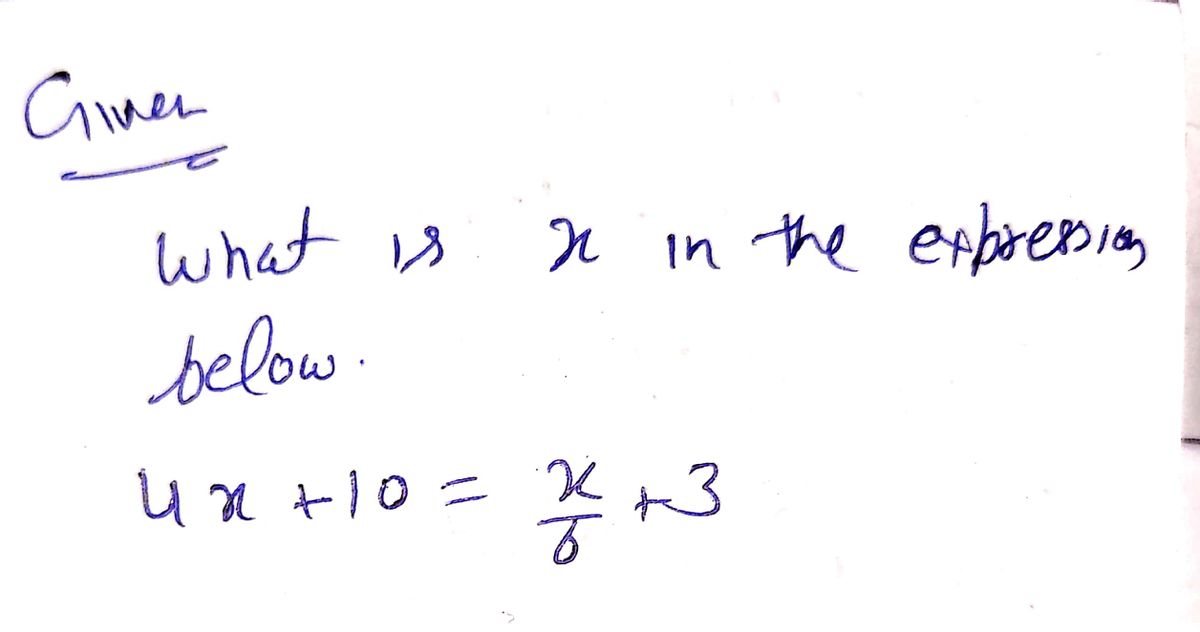 Given
What is x in the expression
below.
4x + 10 = x/6 + 3